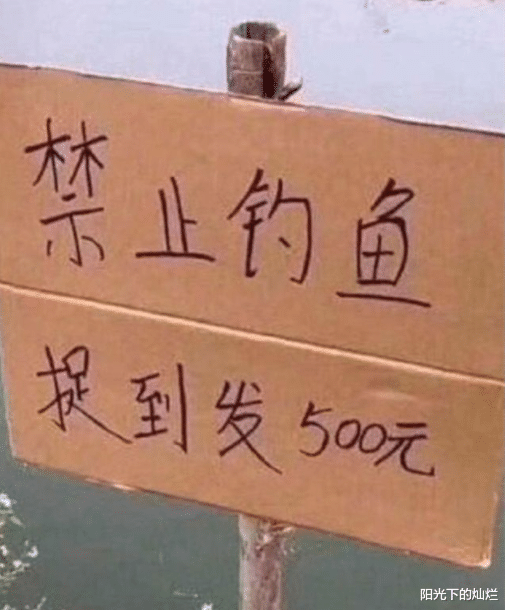 禁止钓鱼
捉到发500元
阳光下的灿烂